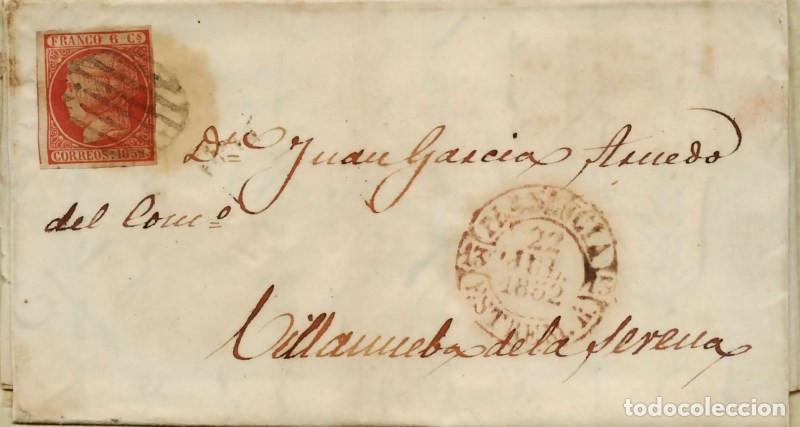 FRANCO 6 Cs
CORREOS. 1852
Dn. Juan Garcia Asnedo
del Como
PLASENCIA
22
JUL.
1852
ESTREM.
13 13
Villanueba de la Serena
todocoleccion